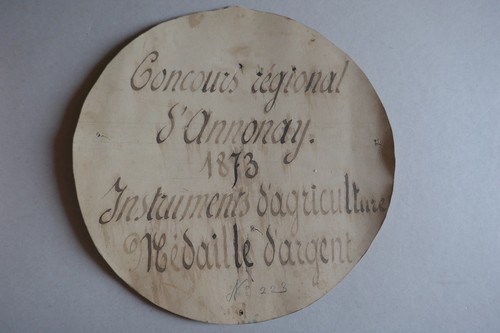 Concours régional
d'Annonay.
1873
Instruments d'agriculture
Médaille d'argent
N° 203